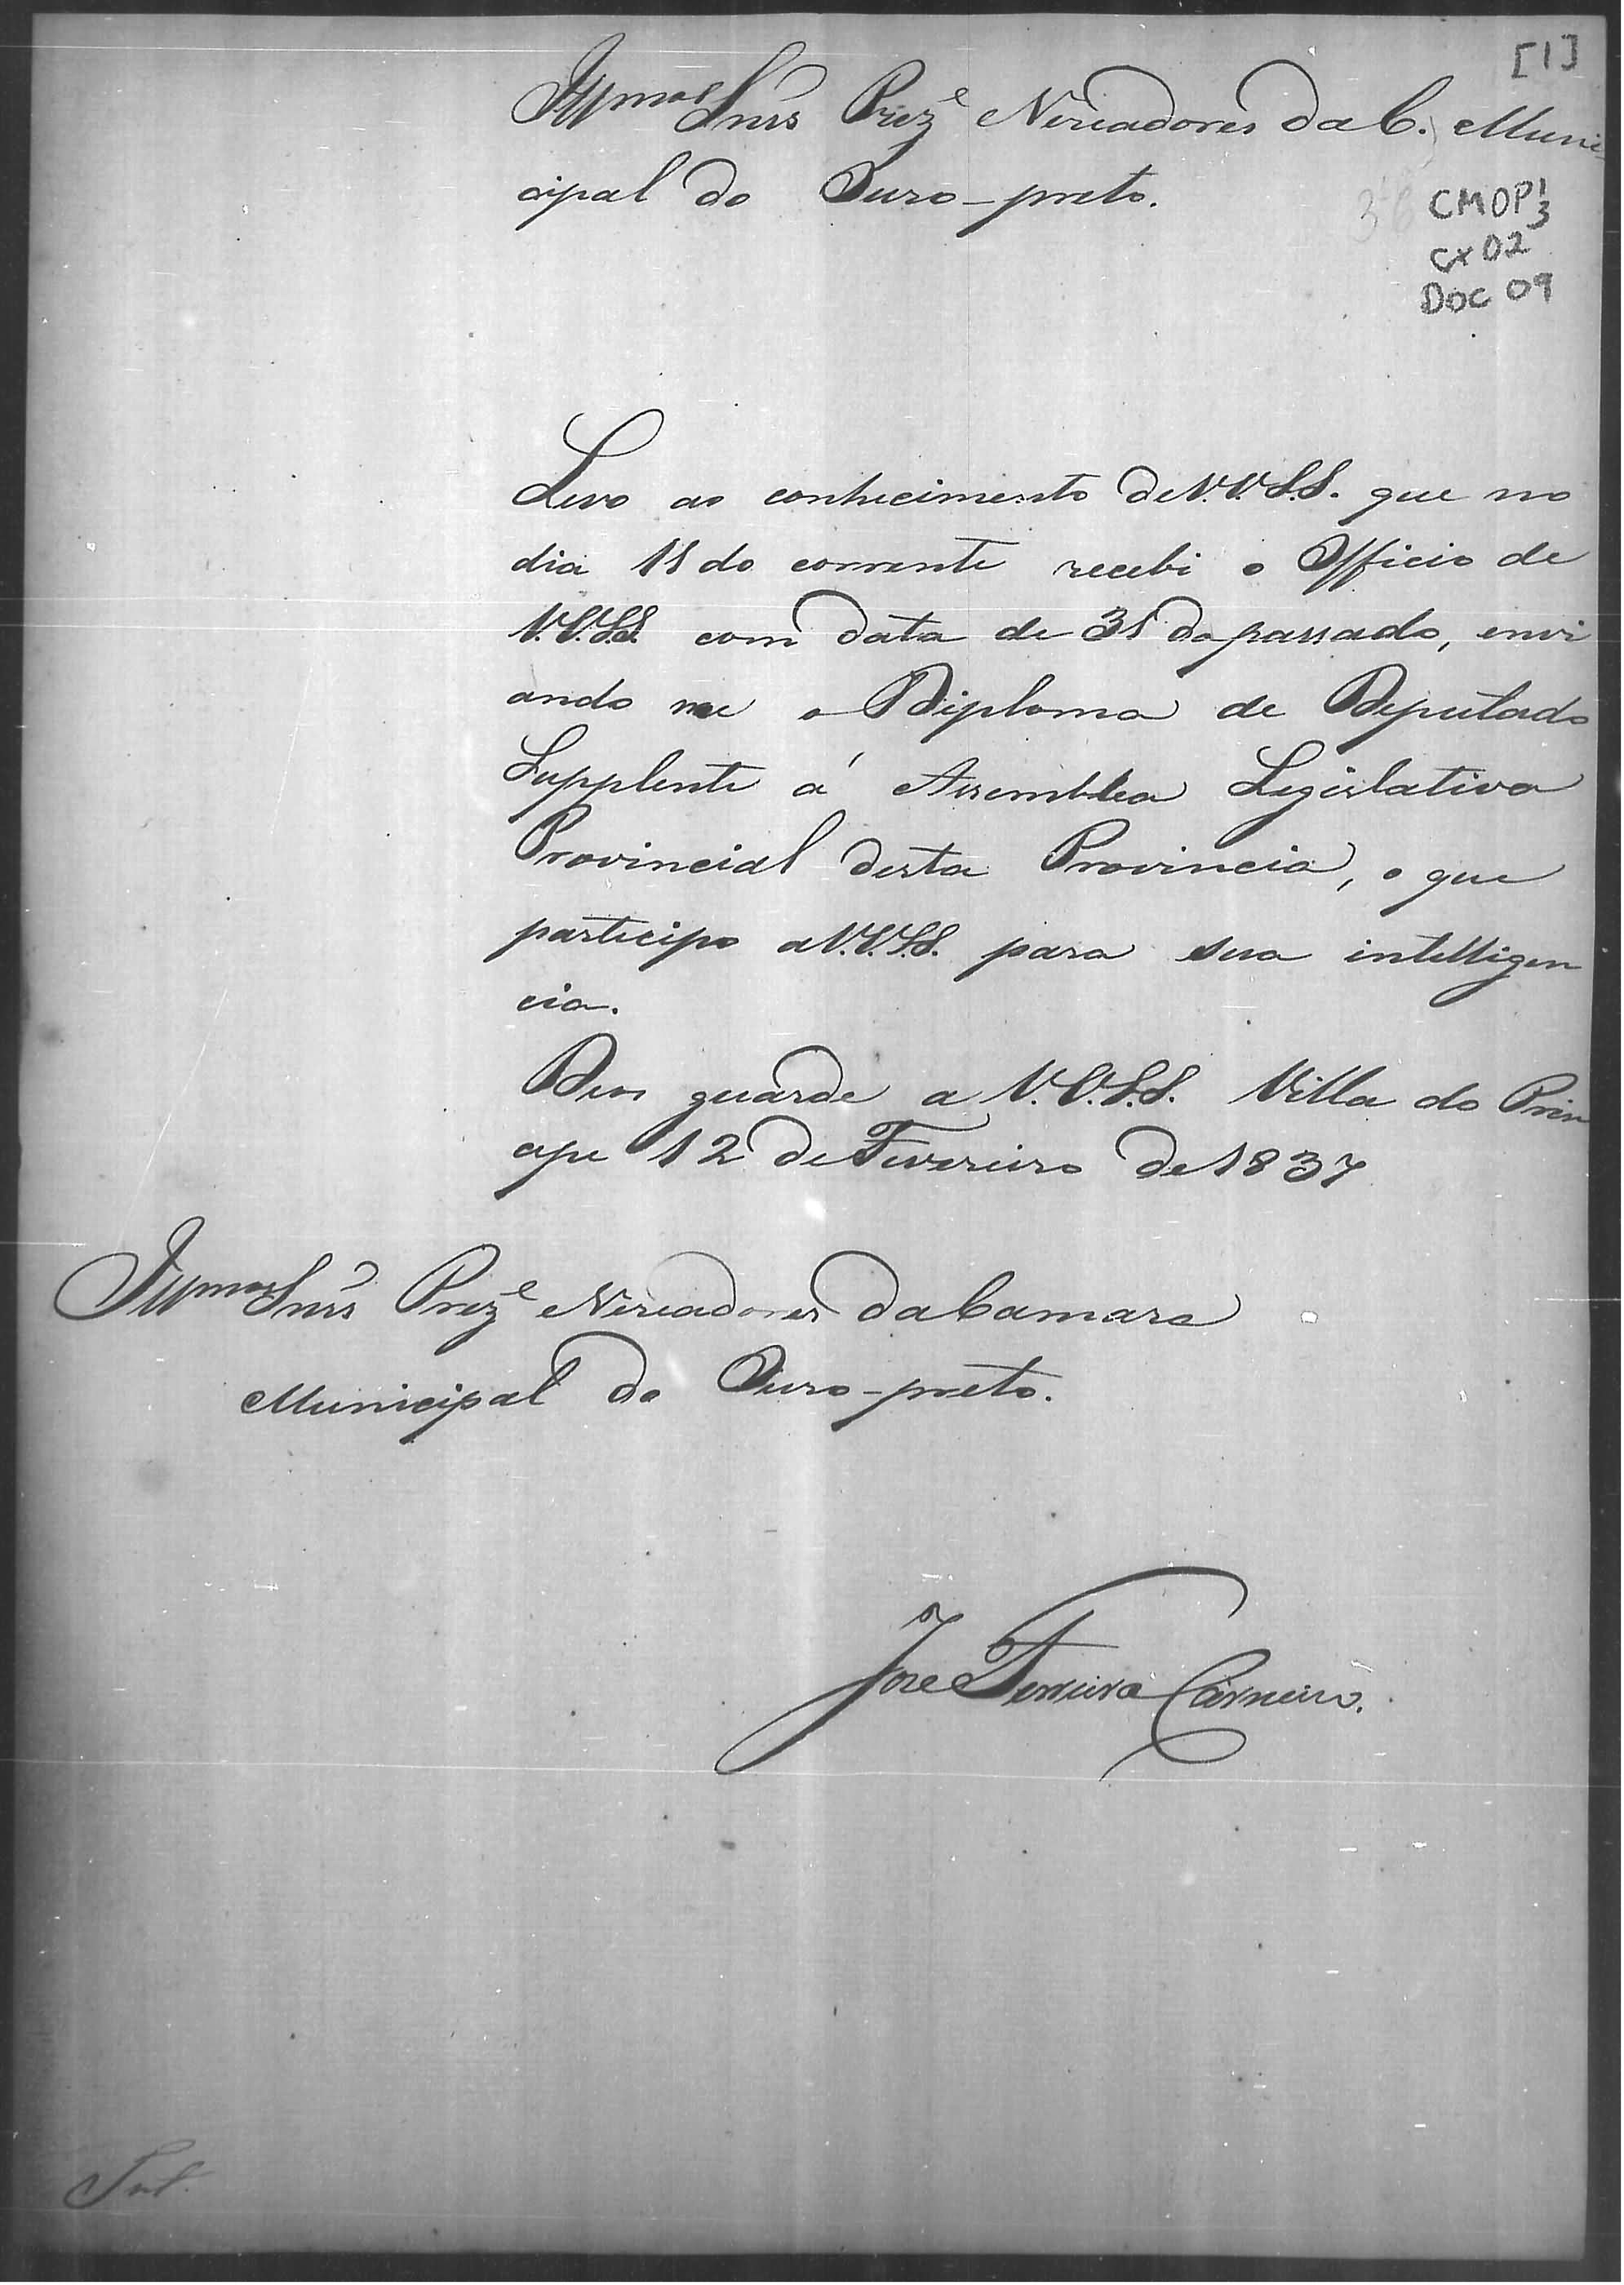 [1]
Illmos Snrs Prezе e Vereadores da C. Muni-
cipal do Ouro-preto.
CMOP 1/3
cx 02
DOC 09
Levo ao conhecimento de V.V.S.S. que no
dia 11 do corrente recebi o Officio de
V.V.S.S. com data de 31 do passado, envi
ando me o Diploma de Deputado
Supplente á Assemblea Legislativa
Provincial desta Provincia, o que
participo a V.V.S.S. para sua intelligen
cia.
Deos guarde a V.V.S.S. Villa do Prin
cipe 12 de Fevereiro de 1837
Illmos Snrs Preze e Vereadores da Camara
Municipal do Ouro-preto.
Jose Ferreira Carneiro.